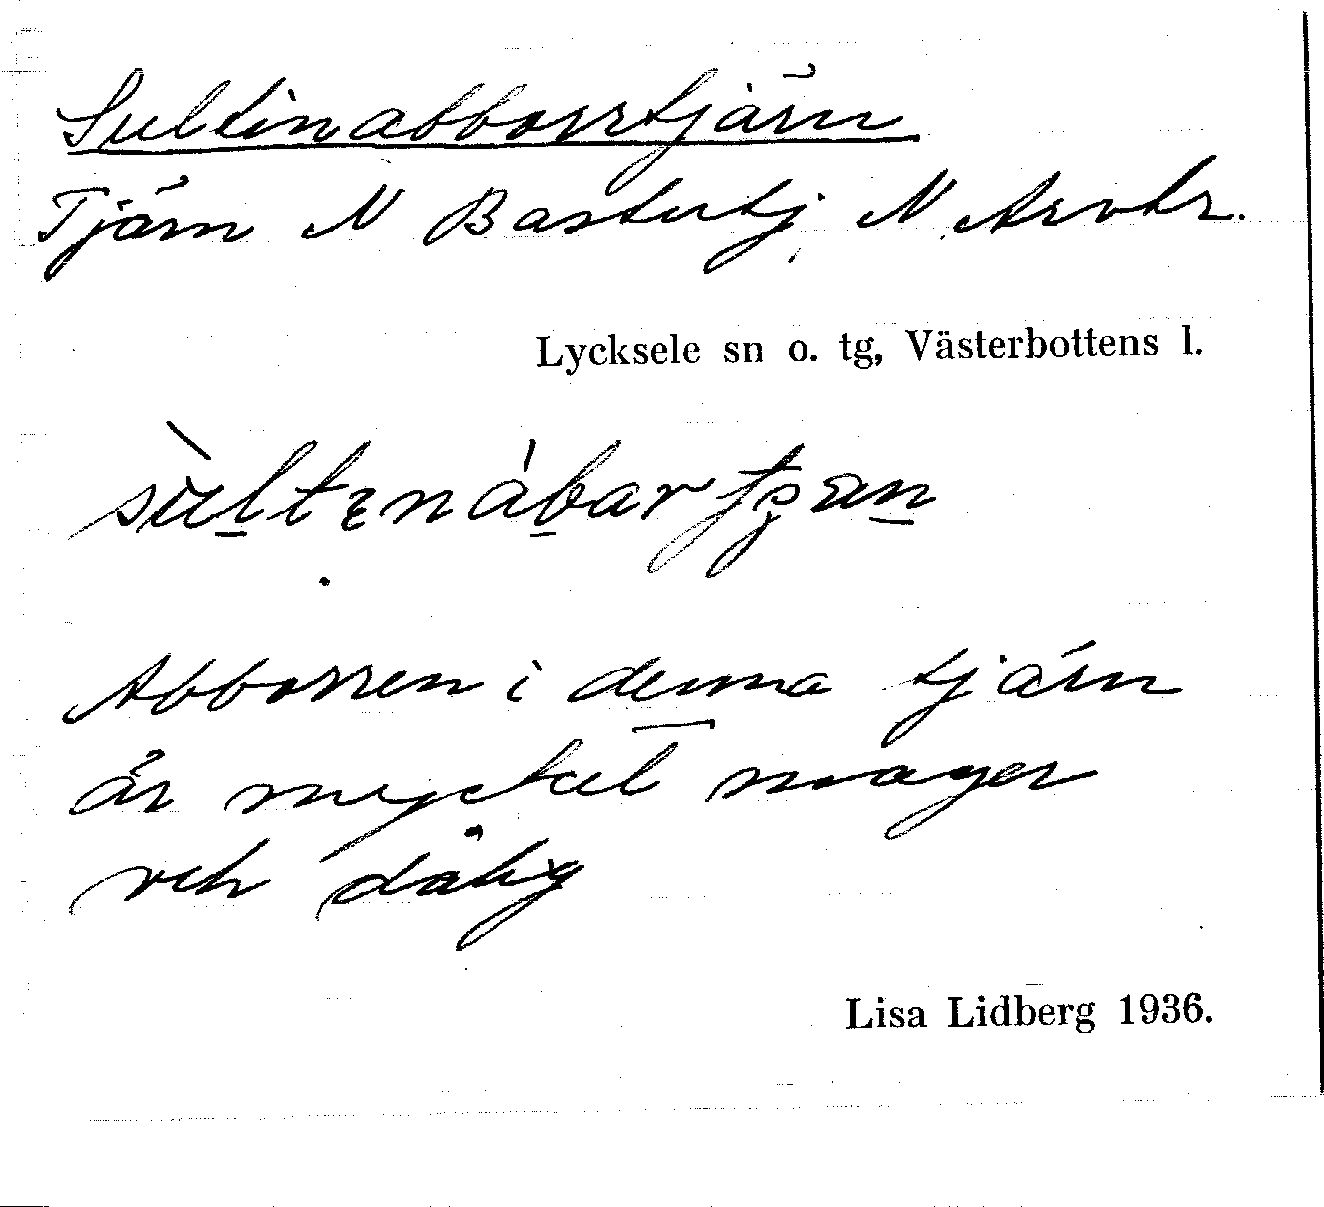 Sultinabborrtjärn
Tjärn N Bastutj. N Arvtr.
Lycksele sn o. tg, Västerbottens l.
Abborren i denna tjärn
är mycket mager
och dålig
Lisa Lidberg 1936.